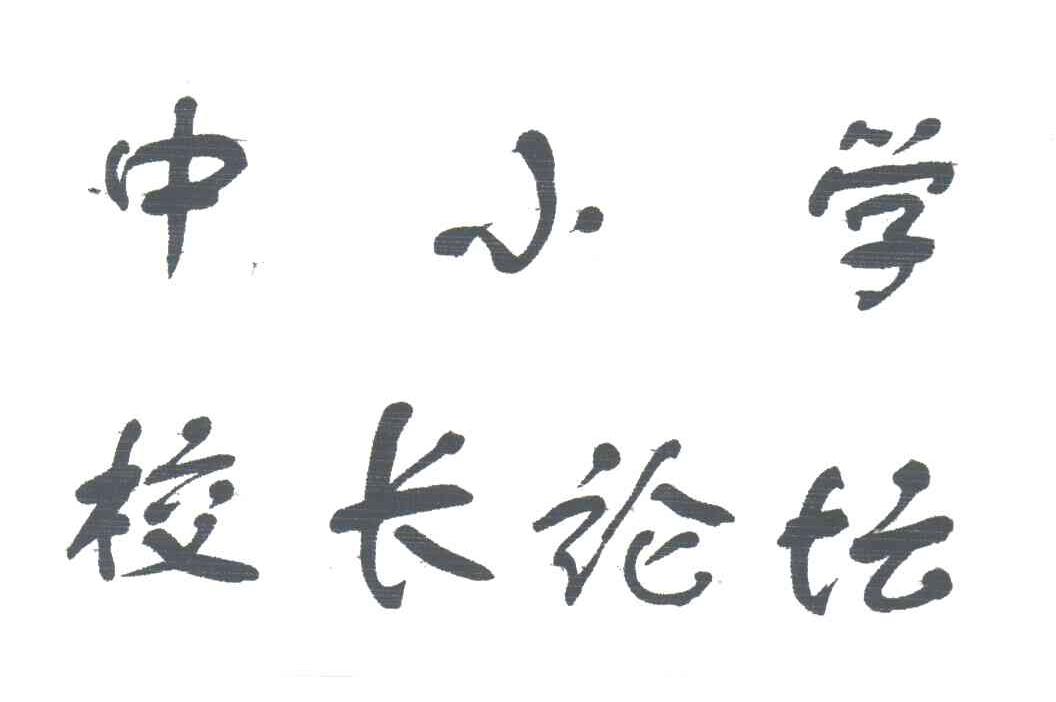 中小学
校长论坛